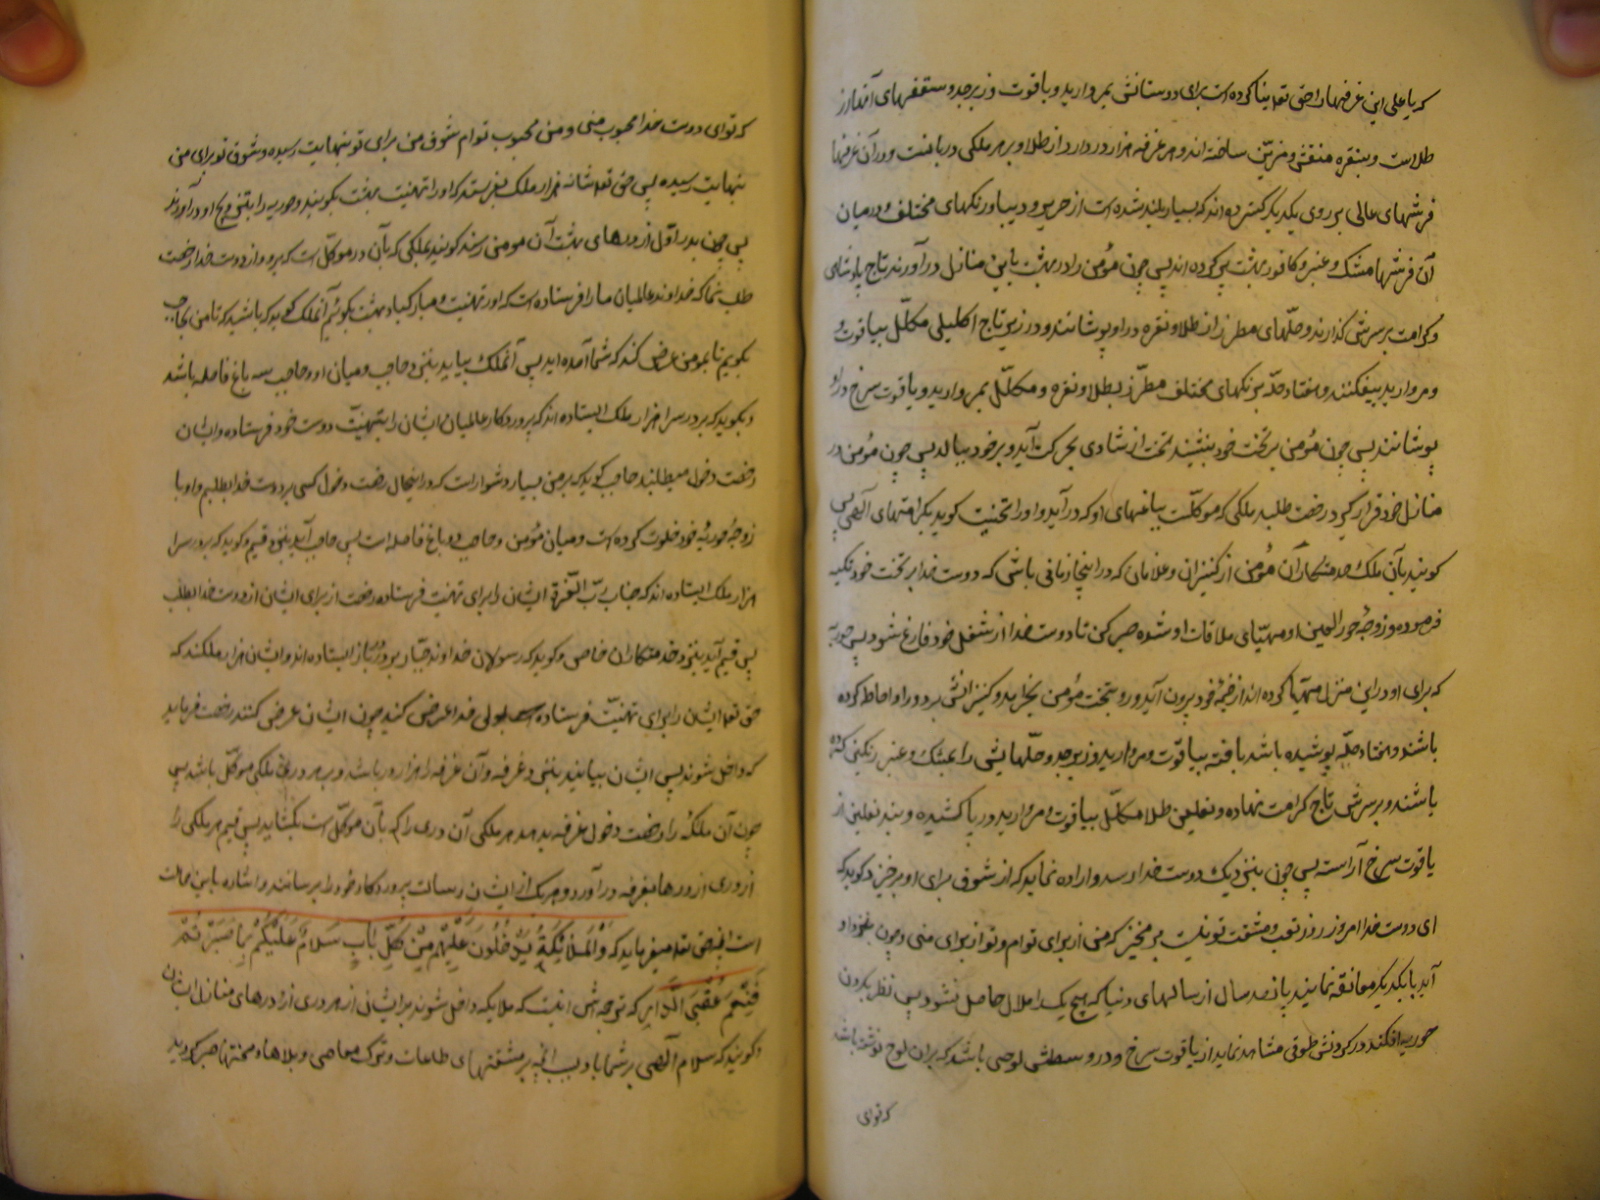 که یا علی این غرفهها را حق تعه بنا کرده است برای دوستانش بمروارید و یاقوت و زبرجد و سقفهای آنها از
طلاست و بنقره منقش و مزین ساخته اند و هر غرفه هزار در دارد از طلا و بر هر دری ملکی دربانست و در آن غرفها
فرشهای عالی بر روی یکدیگر گسترده اند که بسیار بلند شده است از حریر و دیبا و رنگهای مختلف و در میان
آن فرشها مشک و عنبر و کافور بهشت پر کرده اند پس چون مؤمن را در بهشت باین منازل در آورند تاج پادشاهی
و کرامت بر سرش گذارند و حلّهای مطرز از طلا و نقره در او پوشانند و در زیر تاج اکلیلی مکلّل بیاقوت
و مروارید بیفکنند و هفتاد حلّه برنکهای مختلف مطرّز بطلا و نقره و مکلّل بمروارید و یاقوت سرخ در او
پوشانند پس چون مؤمن بر تخت خود بنشیند تخت از شادی بحرکت آید و بر خود ببالد پس چون مؤمن در
منازل خود قرار گیرد رخصت طلبد ملکی که موکلست بباغهای او که در آید و او را تهنیت کوید بکرامتهای آلهی پس
کویند بآن ملک خدمتکاران مؤمن از کنیزان و غلامان که در اینجا زمانی باش که دوست خدا بر تخت خود تکیه
فرموده و زوجهٔ حور العین او مهیّای ملاقات او شده صبر کن تا دوست خدا از شغل خود فارغ شود پس حوریه
که برای او در این منزل مهیّا کرده اند از خیمهٔ خود بیرون آید و رو بتخت مؤمن بخرامد و کنیزانش بر دور او احاطه کرده
باشند و هفتاد حلّه پوشیده باشد بافته بیاقوت و مروارید و زبرجد و حلّهایش را بمشک و عنبر رنکین کرده
باشند و بر سرش تاج کرامت نهاده و نعلین طلا مکلّل بیاقوت و مروارید در پا کشیده و بند نعلین از
یاقوت سرخ آراسته پس چون بنزدیک دوست خدا رسد و اراده نماید که از شوق برای او برخیزد کوید که
ای دوست خدا امروز روز تعب و مشقت تو نیست بر مخیز که من از برای توام و تو از برای منی و چون بنزد او
آید با یکدیکر معانقه نمایند پانصد سال از سالهای دنیا که هیچ یک را ملال حاصل نشود پس نظر بکردن
حوریه افکند در گردنش طوقی مشاهده نماید از یاقوت سرخ و در وسطش لوحی باشد که بر آن لوح نوشته باشد
که تو ای
که تو ای دوست خدا محبوب منی و من محبوب توام شوق من برای تو بنهایت رسیده و شوق تو برای من
بنهایت رسیده پس حق تعه شانه هزار ملک بفرستد که او را تهنیت بهشت بکویند و حوریه را بتزویج او در آورند
پس چون بدر اوّل از درهای بهشت آن مومن رسند کویند بملکی که بآن در موکّل است که برو و از دوست خدا رخصت
طلب نما که خداوند عالمیان ما را فرستاده است که او را تهنیت و مبارکباد بهشت بکوئیم آنملک کوید که باشید که تا من بحاجب
بکویم تا بمومن عرض کند که شما آمده اید پس آنملک بیاید بنزد حاجب و میان او و حاجب سه باغ فاصله باشد
و بکوید که بر در سرا هزار ملک ایستاده اند که پروردکار عالمیان ایشان را بتهنیت دوست خود فرستاده و ایشان
رخصت دخول میطلبند حاجب کوید که بر من بسیار دشوار است که در اینحال رخصت دخول کسی بر دوست خدا بطلبم و او با
زوجهٔ حوریهٔ خود خلوت کرده است و میان مؤمن و حاجب دو باغ فاصله است پس حاجب آید بنزد قیم و کوید که بر در سرا
هزار ملک ایستاده اند که جناب ربّ العزّة ایشان را برای تهنیت فرستاده رخصت از برای ایشان از دوست خدا بطلب
پس قیم آید بنزد خدمتکاران خاص و کوید که رسولان خداوند جبّار بر در باز ایستاده اند و ایشان هزار ملکند که
حق تعه ایشان را برای تهنیت فرستاده است بولی خدا عرض کنید چون ایشان عرض کنند رخصت فرماید
که داخل شوند پس ایشان بیایند بنزد غرفه و آن غرفه را هزار در باشد و بر هر دری ملکی موکّل باشد پس
چون آن ملکه را رخصت دخول غرفه بدهد هر ملکی آن دری را که بآن موکّل است بکشاید پس قیم هر ملکی را
از دری از درها بغرفه در آورد و هر یک از ایشان رسالت پروردکار خود را برسانند و اشاره باین حالت
است اینکه حق تعه میفرماید که وَالْمَلَائِکَةُ یَدْخُلُونَ عَلَیْهِم مِّن کُلِّ بَابٍ سَلَامٌ عَلَیْکُم بِمَا صَبَرْتُمْ
فَنِعْمَ عُقْبَی الدَّارِ که ترجمه اش اینست که ملایکه داخل شوند بر ایشان از هر دری از درهای منازل ایشان
و کویند که سلام آلهی بر شما باد بسبب آنچه بر مشقتهای طاعات و ترک معاصی و بلاها و محنتها صبر کردید